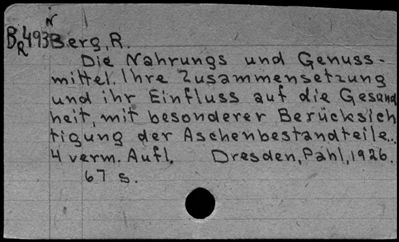 N
BR493 Berg, R.
Die Nahrungs und Genuss-
mittel. Ihre Zusammensetzung
und ihr Einfluss auf die Gesund
heit, mit besonderer Berücksich
tigung der Aschenbestandteile..
4 verm. Aufl. Dresden, Pahl, 1926.
67 s.